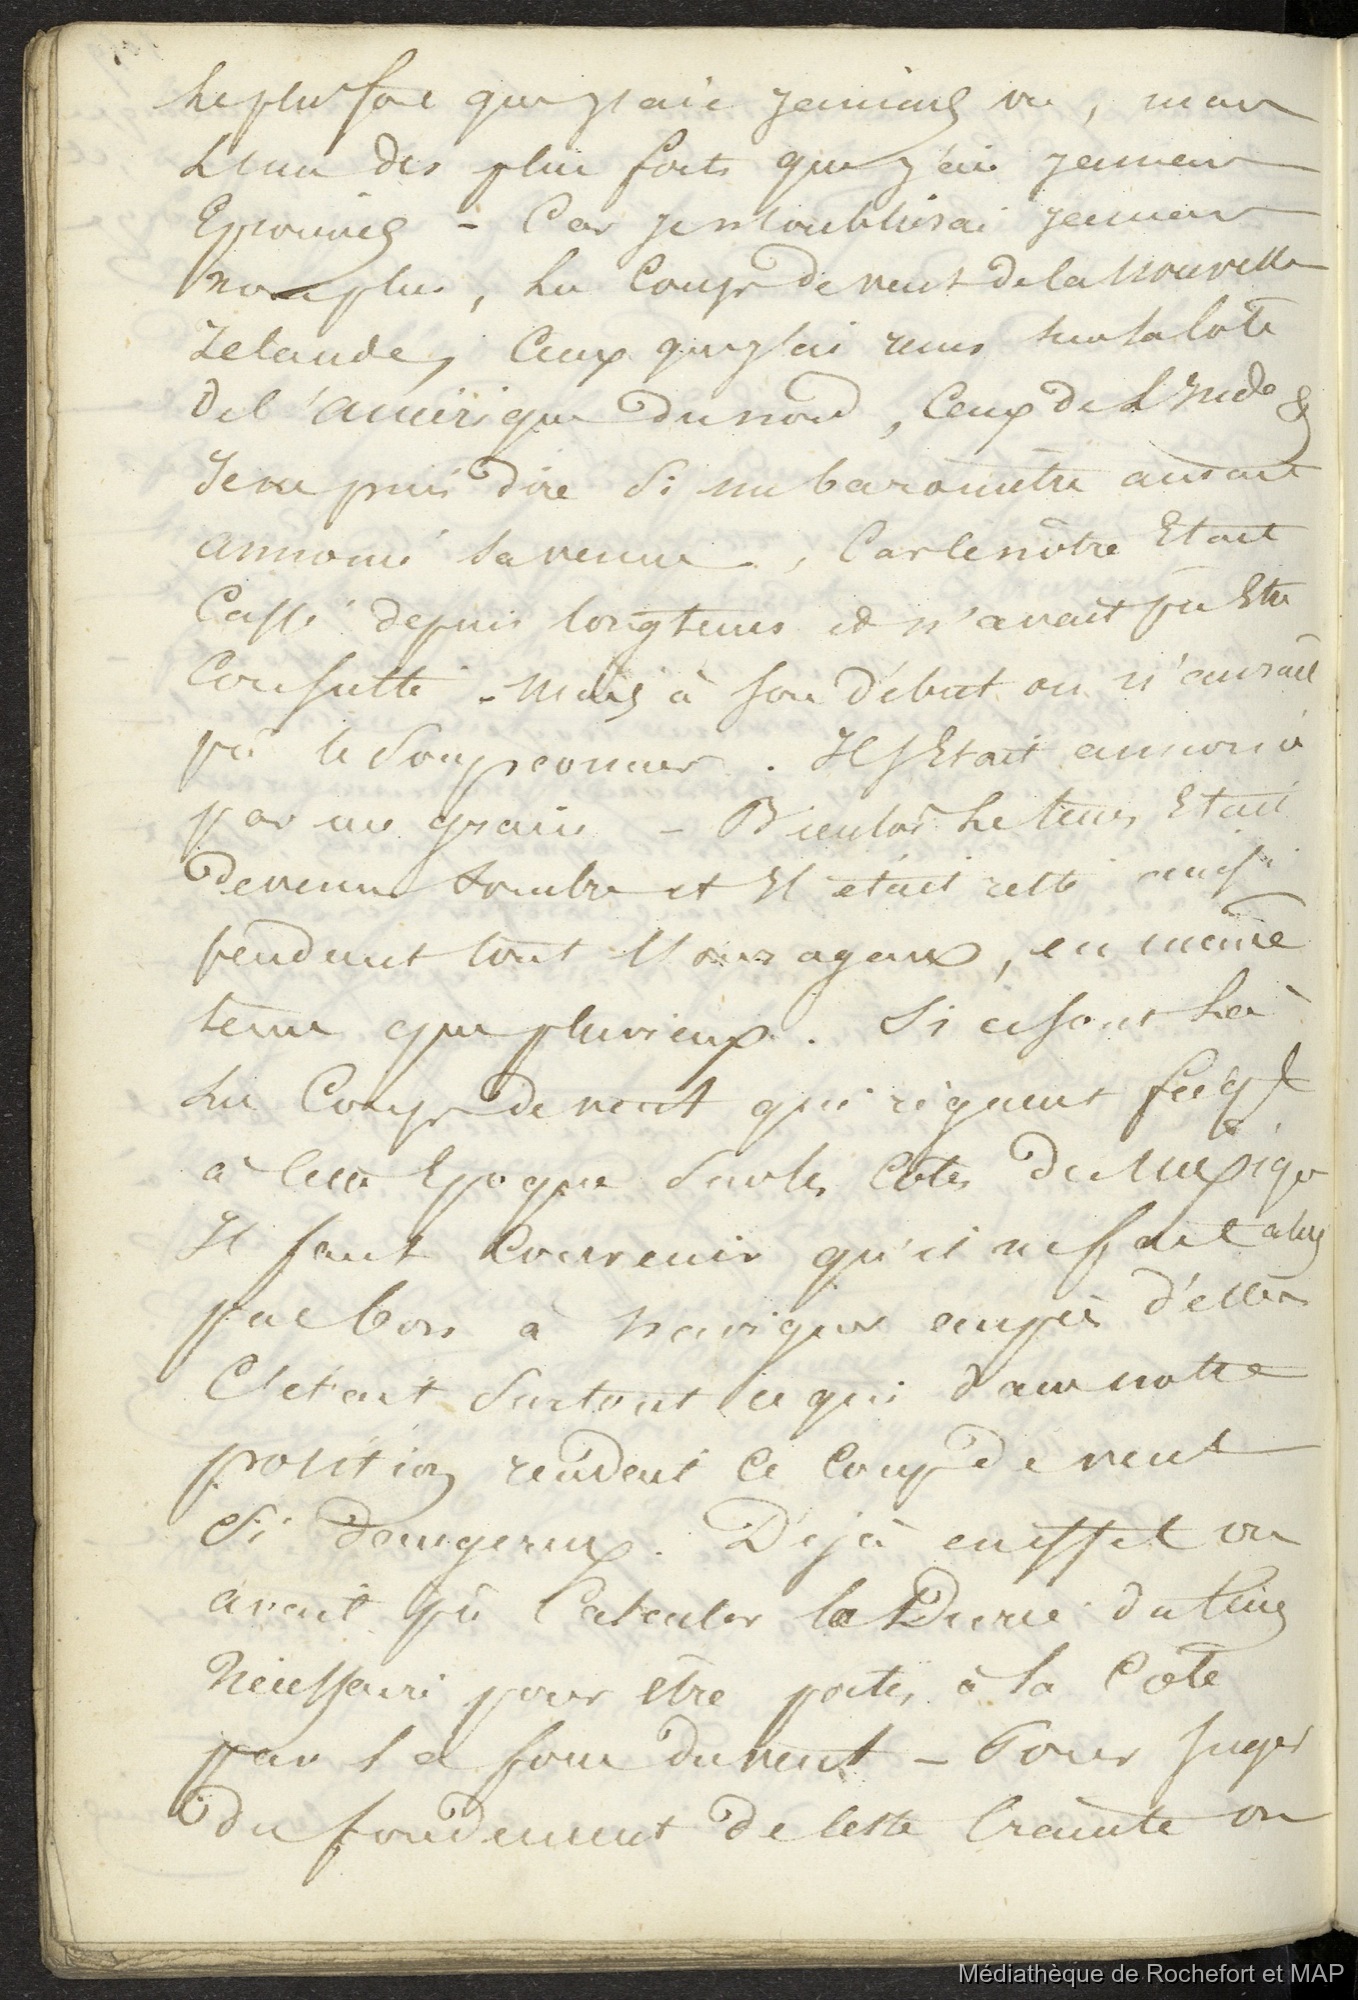 Le plus fort que j'aie jamais vu, mais
L'un des plus forts que j'aie jamais
Eprouvés - Car je n'oublierai jamais
non plus, Les Coups de vent de la Nouvelle
Zelande, Ceux que j'ai reçus sur la Cote
de l'amérique du nord, Ceux de L'Inde &
Je ne puis dire Si un barometre aurait
annoncé sa venue, Car le nôtre Etait
Cassé depuis longtems et n'avait pu Etre
Consulté. Mais à son début on n'aurait
pû le Soupçonner. Il s'Etait annoncé
par un grain - Bientot Le tems Etait
devenu Sombre et Il était resté ainsi
pendant tout l'ouragan, en même
tems que pluvieux. Si ce sont Là
Les Coups de vent qui règnent
à Cette Epoque Sur les Côtes du Mexique
Il faut Convenir qu'il ne fait alors
pas bon à Naviguer auprès d'elles
C'était Surtout ce qui dans notre
position rendait Ce Coup de vent
Si dangereux. Déjà en effet on
avait pû Calculer la Durée du tems
Nécessaire pour être portés à la Côte
par la force du vent - Pour Juger
du fondement de Cette Crainte on
Médiathèque de Rochefort et MAP